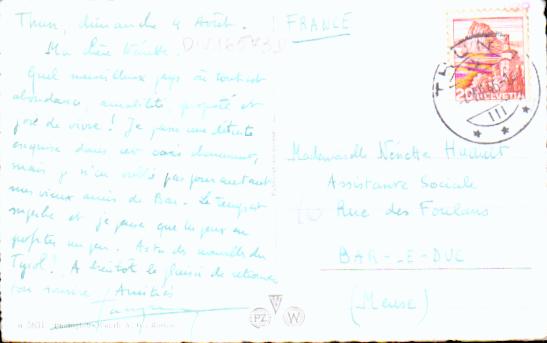 Thun, dimanche 4 Août.
Ma chère Nénette.
Quel merveilleux pays où tout est
abondance, amabilité, propreté et
joie de vivre ! Je passe une détente
exquise dans cet oasis
mais je n'en oublie pas pour autant
mes vieux amis de Bar. Le temps est
superbe et je pense que les jeux en
profites un peu. As-tu des nouvelles du
Tyrol ? A bientôt le plaisir de retrouver
ton sourire. Amitiés
FRANCE
THUN
HELVETIA
III
Mademoiselle Nénette
Assistante Sociale
Rue des Foulans
BAR-LE-DUC
(Meuse)
PZ W